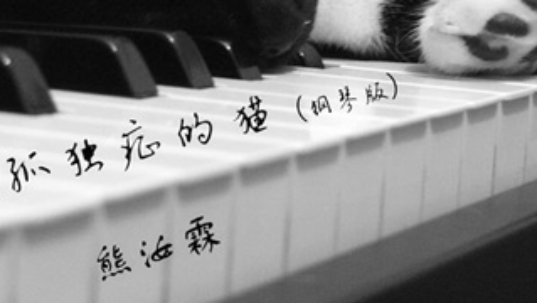 孤独症的猫（钢琴版）
熊汝霖